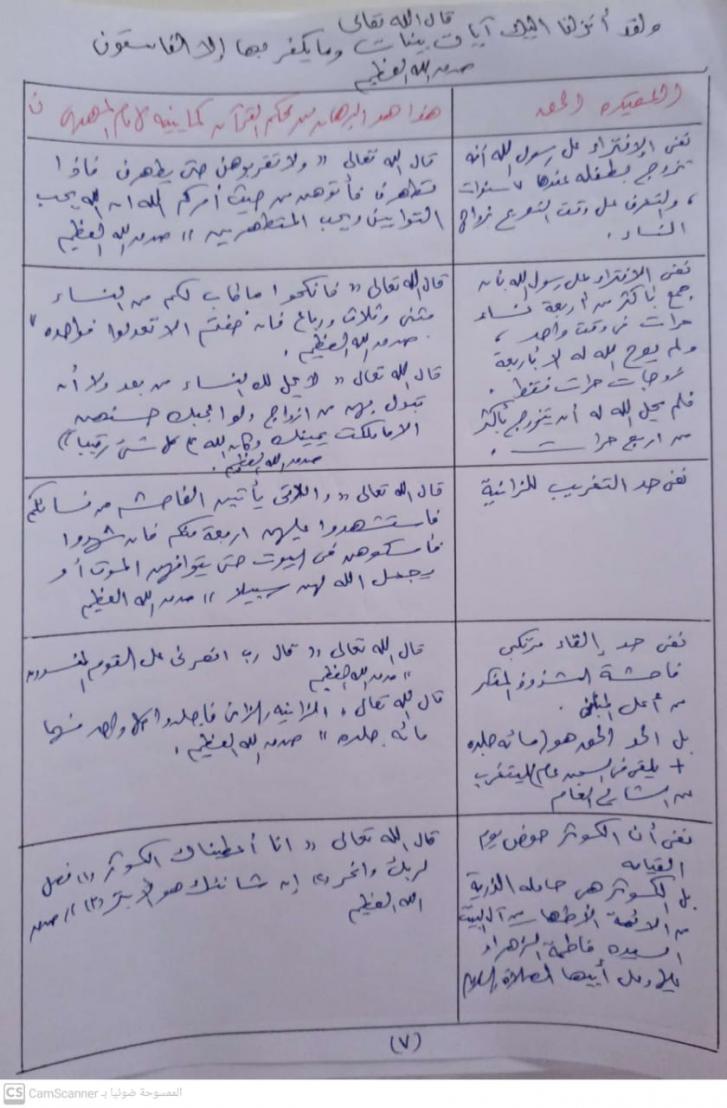 قال الله تعالى
ولقد أنزلنا إليك آيات بينات وما يكفر بها إلا الفاسقون
صدق الله العظيم
العقيدة الحق
هذا هو البرهان من محكم القرآن كما بينه الإمام المهدي ن
نفي الإفتراء على رسول الله أنه
تزوج بطفله عندها ٧ سنوات
، والتعرف على وقت الشرع زواج
النساء .
قال الله تعالى " ولا تقربوهن حتى يطهرن فاذا
تطهرن فأتوهن من حيث أمركم الله ان الله يحب
التوابين ويحب المتطهرين " صدق الله العظيم
نفي الافتراء على رسول الله بأن
جمع بأكثر من أربعة نساء
حرات في وقت واحد ،
ولم يبح الله له إلا بأربعة
زوجات حرات فقط .
فلم يحل الله له أن يتزوج بأكثر
من اربع حرات .
قال الله تعالى " فانكحوا ما طاب لكم من النساء
مثنى وثلاث ورباع فان خفتم الا تعدلوا فواحده "
صدق الله العظيم .
قال الله تعالى " لا يحل لك النساء من بعد ولا أن
تبدل بهن من ازواج ولو اعجبك حسنهن
الا ما ملكت يمينك وكان الله على كل شئ رقيبا "
صدق الله العظيم .
نفي حد التغريب للزانية
قال الله تعالى " واللاتي يأتين الفاحشه من نسائكم
فاستشهدوا عليهن اربعة منكم فان شهدوا
فامسكوهن في البيوت حتى يتوافهن الموت أو
يجعل الله لهن سبيلا " صدق الله العظيم
نفي حد إلقاء مرتكبي
فاحشة الشذوذ المنكر
من أعلى المبنى .
بل الحد الحق هو (مائه جلده
+ يلقى في السجن عام ليتغرب
من
قال الله تعالى " قال رب انصرني على القوم المفسدون
" صدق الله العظيم
قال الله تعالى " الزانيه والزاني فاجلدوا كل واحد منهما
مائه جلده " صدق الله العظيم .
نفي أن الكوثر حوض يوم
القيامه
بل الكوثر هي حامله الذرية
من الائمة الأطهار من آل البيت
السيده فاطمة الزهراء
عليها وعلى أبيها الصلاة والسلام
قال الله تعالى " انا أعطيناك الكوثر (١) فصل
لربك وانحر (٢) إن شانئك هو الابتر (٣) " صدق
الله العظيم
(٧)
CS CamScanner الممسوحة ضوئيا بـ